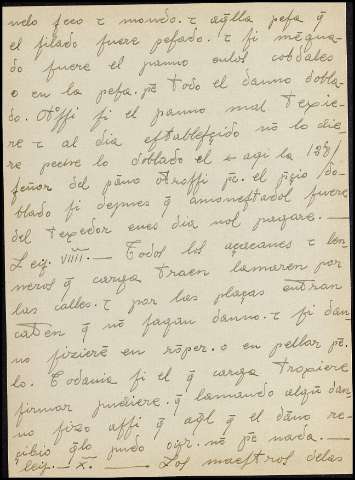 nelo feco τ mondo. τ aq̃lla pesa q̃
el filado fuere pesado. τ si mẽgua-
do fuere el panno enlos cobdales
o en la pesa. pẽ todo el danno dobla-
do. Otossi si el panno mal texie-
re τ al dia establesçido nõ lo die-
re peche lo doblado el
señor del pãno otrossi pẽ. el p̃çio /do-
blado si depues q̃ amonestados fuere
del texedor enes dia nol pagare. —
Ley. VIIII. — Todos los açacanes τ len-
neros q̃ carga traen lamaren por
las calles. τ por las plaças entran
caten q̃ nõ fagan danno. τ si dan-
no fizierẽ en rõper. o en pellar pẽ-
lo. Todauia si el q̃ carga troxiere
firmar pudiere. q̃ lamando algũ dan-
no fizo assi q̃ aq̃l q̃ el dãno re-
çibio q̃lo pudo oyr. nõ pẽ nada. —
Ley. — X. — Los maestros delas